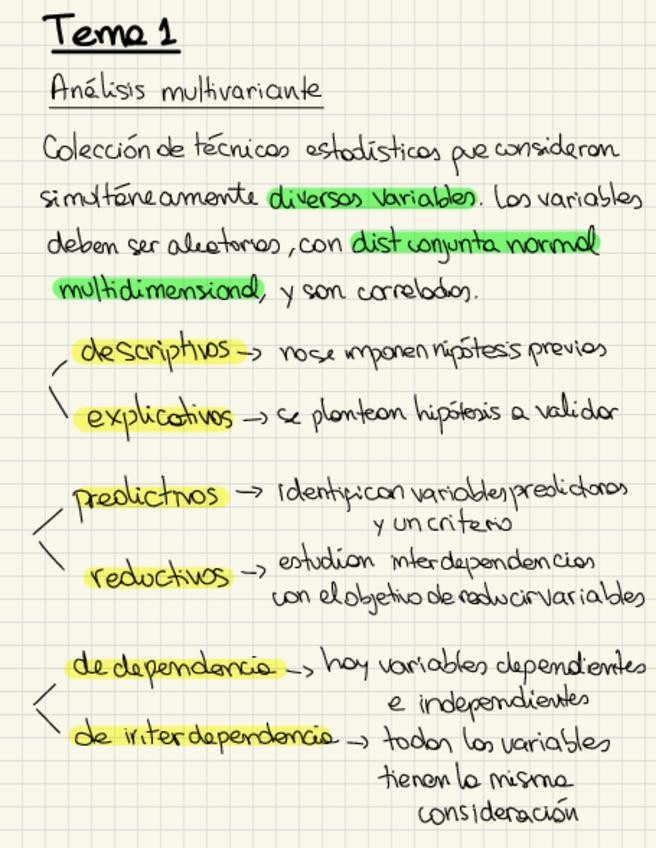 Tema 1
Análisis multivariante
Colección de técnicas estadísticas que consideran
simultáneamente diversas variables. Las variables
deben ser aleatorias, con dist conjunta normal
multidimensional, y son correladas.
descriptivos → no se imponen hipótesis previas
explicativos → se plantean hipótesis a validar
predictivos → identifican variables predictoras
y un criterio
reductivos → estudian interdependencias
con el objetivo de reducir variables
de dependencia → hay variables dependientes
e independientes
de interdependencia → todas las variables
tienen la misma
consideración